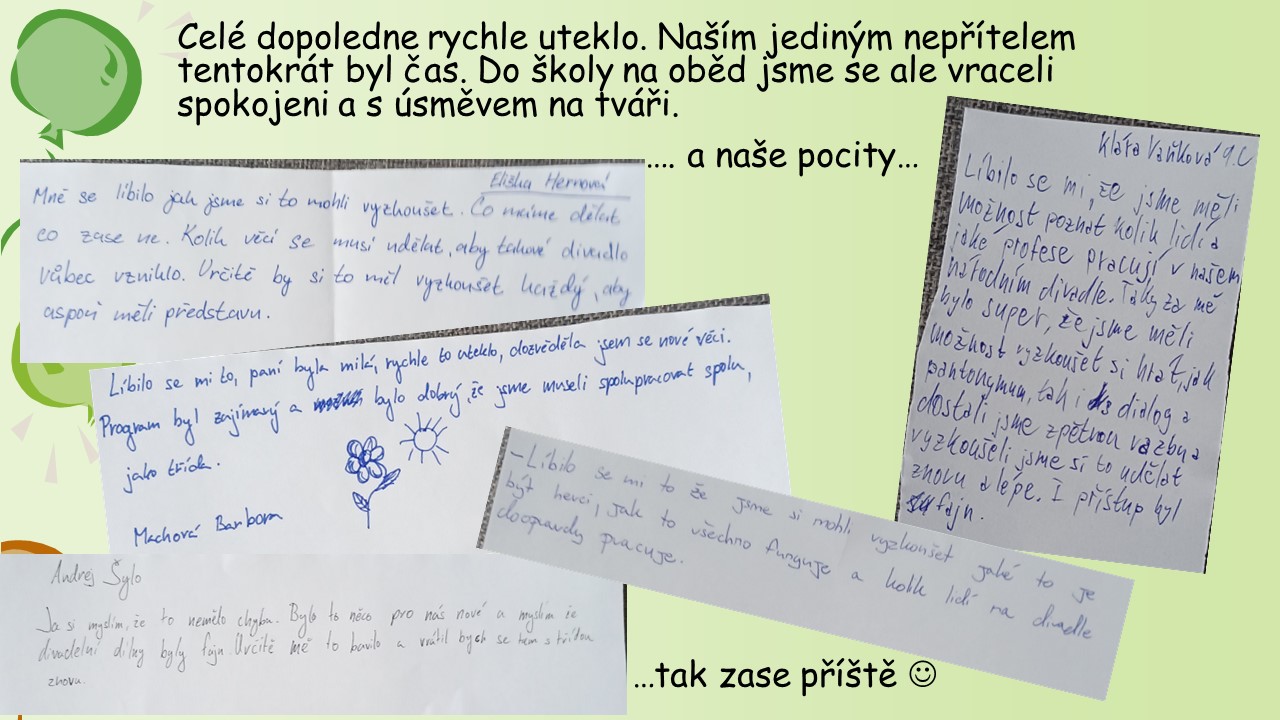 Celé dopoledne rychle uteklo. Naším jediným nepřítelem
tentokrát byl čas. Do školy na oběd jsme se ale vraceli
spokojeni a s úsměvem na tváři.
.... a naše pocity…
Eliška Hernová
Mně se líbilo jak jsme si to mohli vyzkoušet. Co máme dělat
co zase ne. Kolik věcí se musí udělat, aby takové divadlo
vůbec vzniklo. Určitě by si to měl vyzkoušet každý, aby
aspoň měli představu.
Klára Vaňková 9.C
Líbilo se mi, že jsme měli
možnost poznat kolik lidí a
jaké profese pracují v našem
národním divadle. Taky za mě
bylo super, že jsme měli
možnost vyzkoušet si hrát, jak
pantonymum, tak i dialog a
dostali jsme zpětnou vazbu a
vyzkoušeli jsme si to udělat
znovu a lépe. I přístup byl
fajn.
Líbilo se mi to, paní byla milá, rychle to uteklo, dozvěděla jsem se nové věci.
Program byl zajímavý a bylo dobrý, že jsme museli spolupracovat spolu,
jako třída.
Machová Barbora
-Líbilo se mi to že jsme si mohli vyzkoušet jaké to je
být herci, jak to všechno funguje a kolik lidí na divadle
doopravdy pracuje.
Andrej Šylo
Ja si myslím, že to nemělo chyba. Bylo to něco pro nás nové a myslím že
divadelní dílny byly fajn. Určitě mě to bavilo a vrátil bych se tam s třídou
znovu.
…tak zase příště ☺